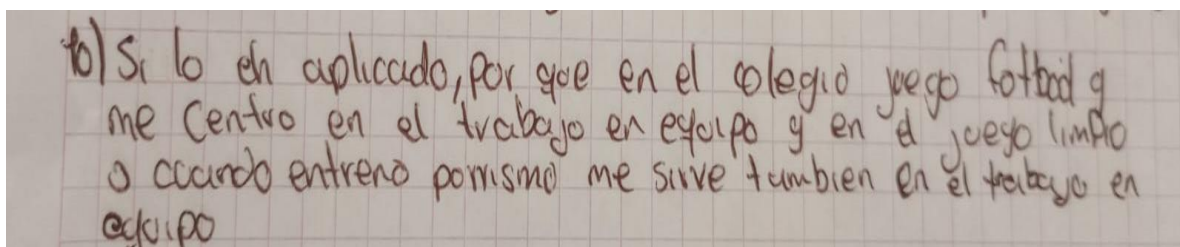 10) Si lo eh aplicado, por que en el colegio juego fotbool y
me centro en el trabajo en equipo y en el juego limpio
o cuando entreno porrismo me sirve tambien en el trabajo en
equipo